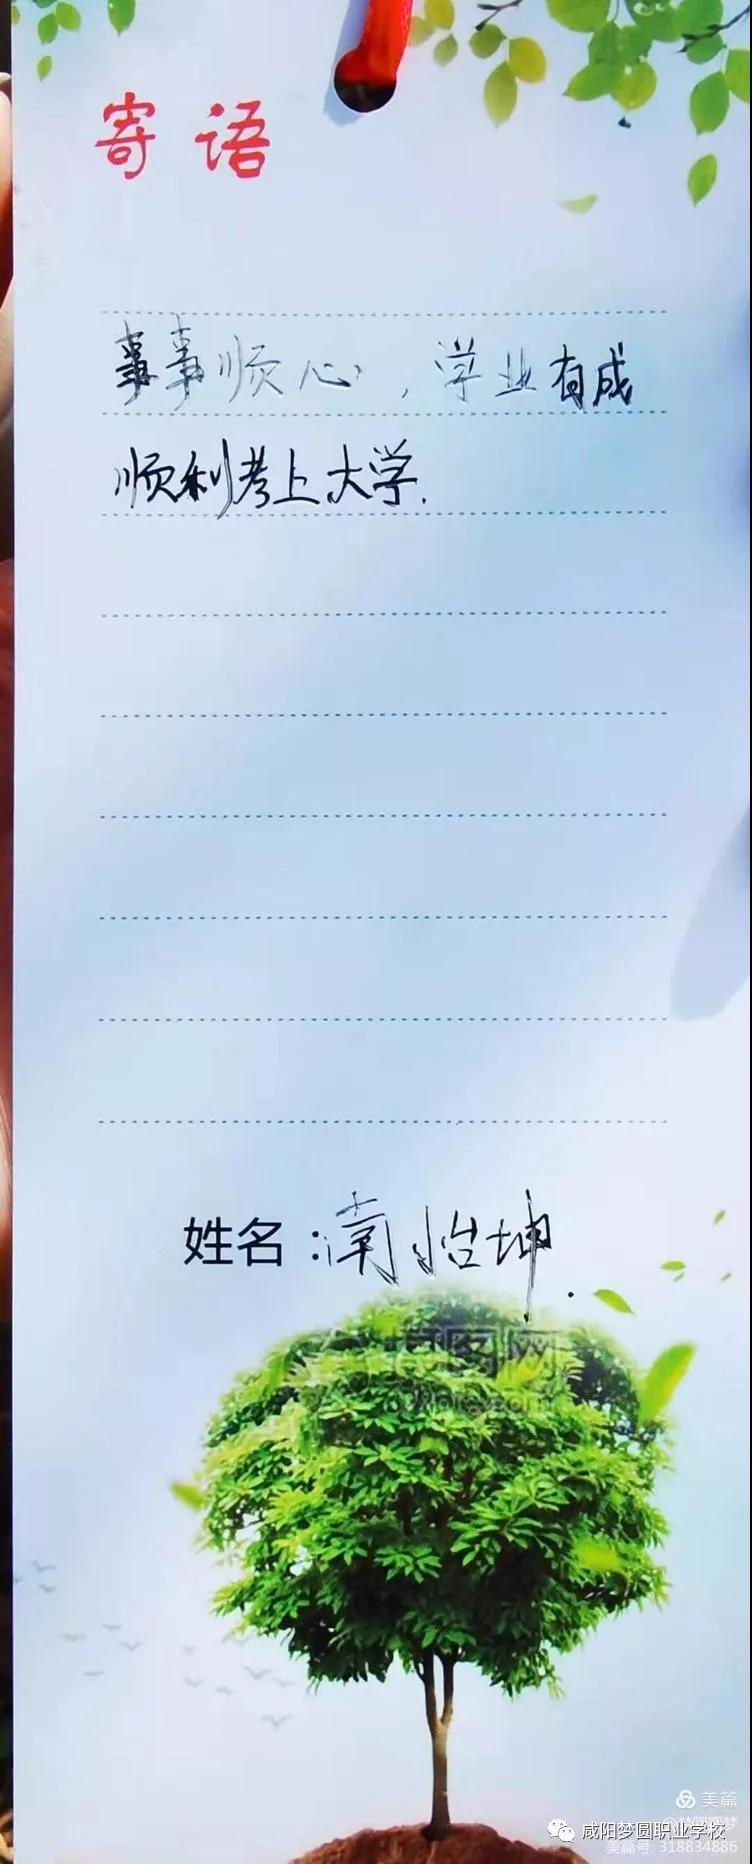 寄语
事事顺心，学业有成
顺利考上大学.
姓名：南怡坤.
美篇
咸阳梦圆职业学校
美篇号: 318834886